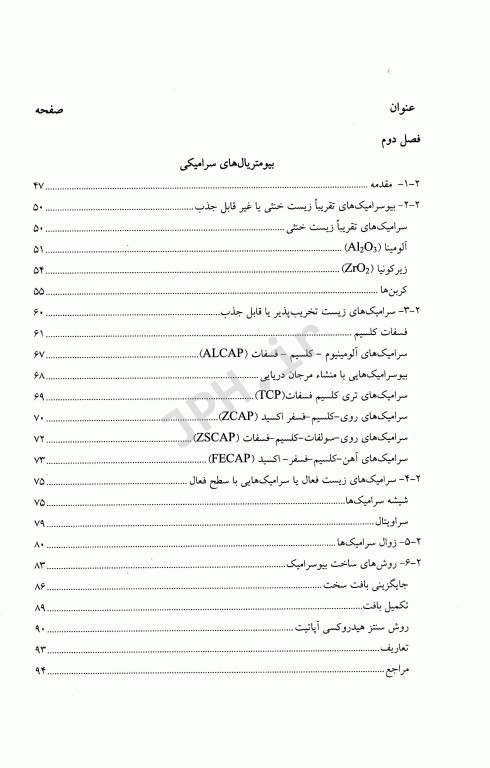 عنوان صفحه
فصل دوم
بیومتریال‌های سرامیکی
۲-۱- مقدمه ........ ۴۷
۲-۲- بیوسرامیک‌های تقریباً زیست خنثی یا غیر قابل جذب ........ ۵۰
سرامیک‌های تقریباً زیست خنثی ........ ۵۰
آلومینا (Al₂O₃) ........ ۵۱
زیرکونیا (ZrO₂) ........ ۵۴
کربن‌ها ........ ۵۵
۲-۳- سرامیک‌های زیست تخریب‌پذیر یا قابل جذب ........ ۶۰
فسفات کلسیم ........ ۶۱
سرامیک‌های آلومینیوم - کلسیم - فسفات (ALCAP) ........ ۶۷
بیوسرامیک‌هایی با منشاء مرجان دریایی ........ ۶۸
سرامیک‌های تری کلسیم فسفات (TCP) ........ ۶۹
سرامیک‌های روی-کلسیم-فسفر اکسید (ZCAP) ........ ۷۰
سرامیک‌های روی-سولفات-کلسیم-فسفات (ZSCAP) ........ ۷۲
سرامیک‌های آهن-کلسیم-فسفر-اکسید (FECAP) ........ ۷۳
۲-۴- سرامیک‌های زیست فعال یا سرامیک‌هایی با سطح فعال ........ ۷۵
شیشه سرامیک‌ها ........ ۷۵
سراویتال ........ ۷۹
۲-۵- زوال سرامیک‌ها ........ ۸۰
۲-۶- روش‌های ساخت بیوسرامیک ........ ۸۳
جایگزینی بافت سخت ........ ۸۶
تکمیل بافت ........ ۸۹
روش سنتز هیدروکسی آپاتیت ........ ۹۰
تعاریف ........ ۹۳
مراجع ........ ۹۴
JPH.ir